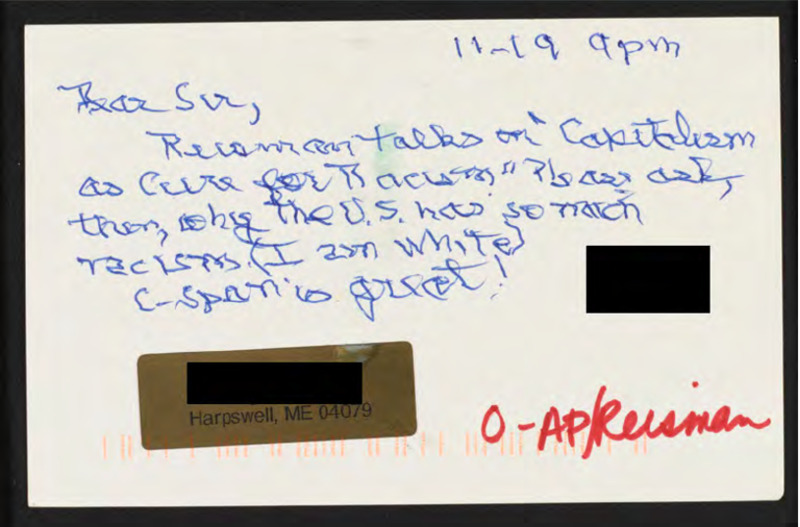 11-19 9pm
Dear Sir,
Reisman talks on "Capitalism
as Cure for Racism" Please ask,
then, why the U.S. has so much
racism. (I am white)
C-span is great!
Harpswell, ME 04079
O-AP/Reisman